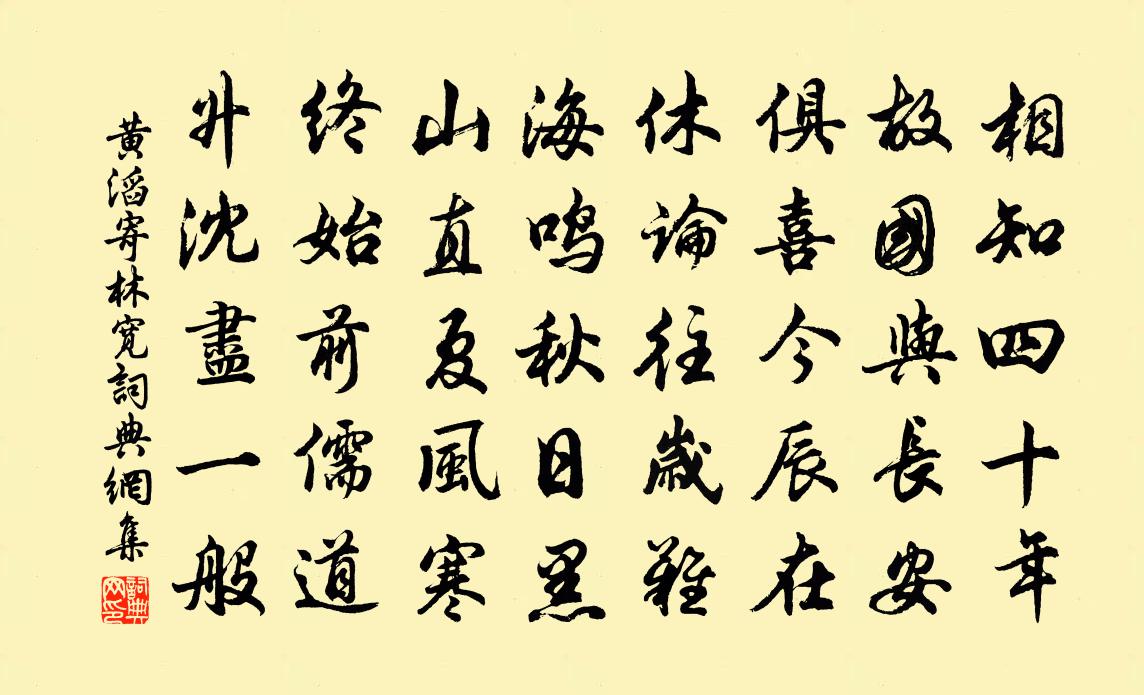 相知四十年
故國與長安
俱喜今辰在
休論往歲難
海鳴秋日黑
山直夏風寒
終始前儒道
升沈盡一般
黃滔寄林寬詞典網集
詞典网印